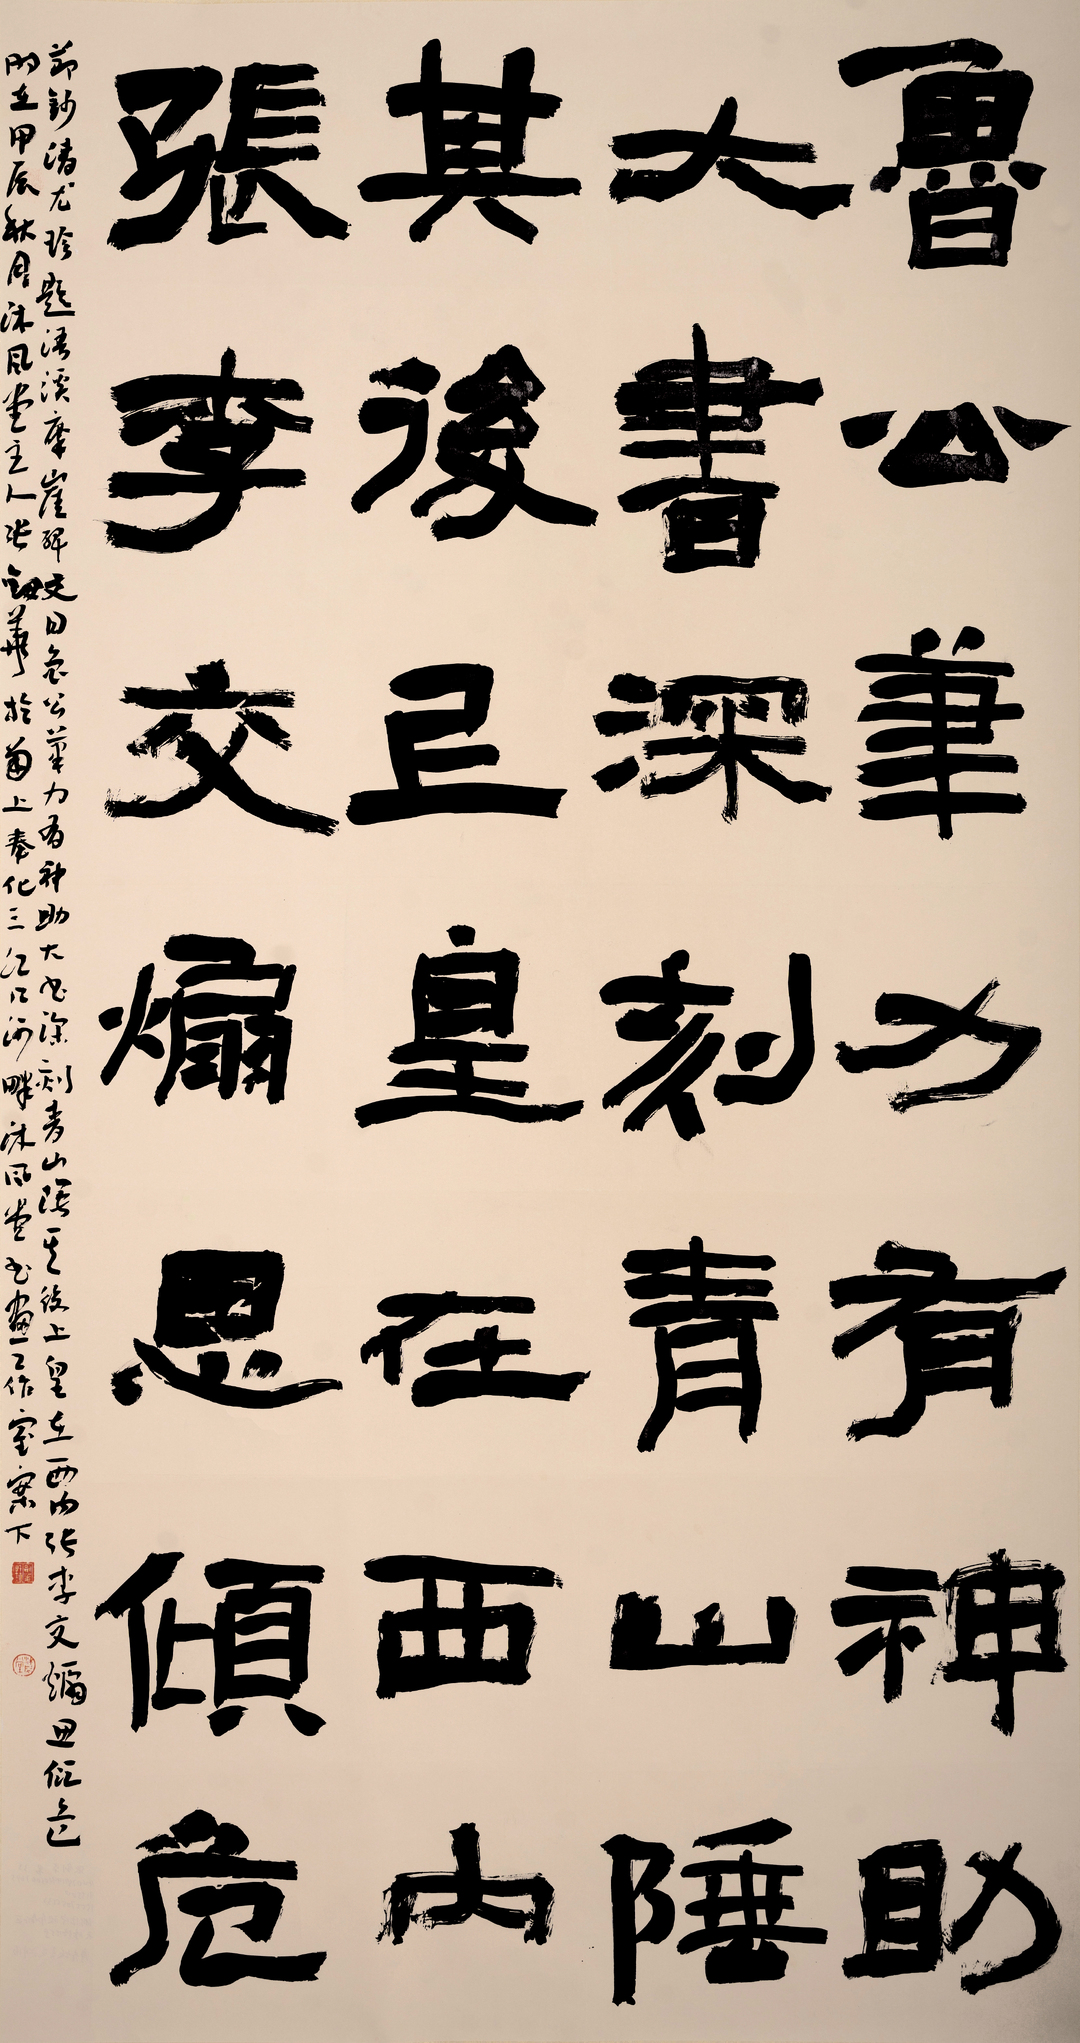 魯公筆力有神助
大書深刻青山陲
其後上皇在西内
張李交煽思傾危
節鈔清尤珍題浯溪摩崖碑文曰魯公筆力有神助大書深刻青山陲其後上皇在西内張李交煽思傾危
時在甲辰秋月沐風堂主人張劍華於甬上奉化三江口河畔沐風堂書畫工作室案下